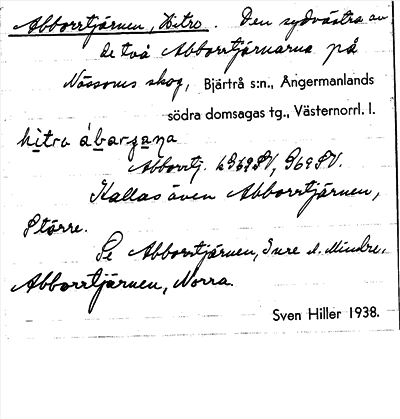 Abborrtjärnen, Hitre. Den sydvästra av
de två Abborrtjärnarna på
Nässoms skog, Bjärtrå s:n., Ångermanlands
södra domsagas tg., Västernorrl. l.
hitra ábarʒana
Abborrtj. 69SV, G69SV.
Kallas även Abborrtjärnen,
Större.
Se Abborrtjärnen, Inre o. Mindre.
Abborrtjärnen, Norra.
Sven Hiller 1938.